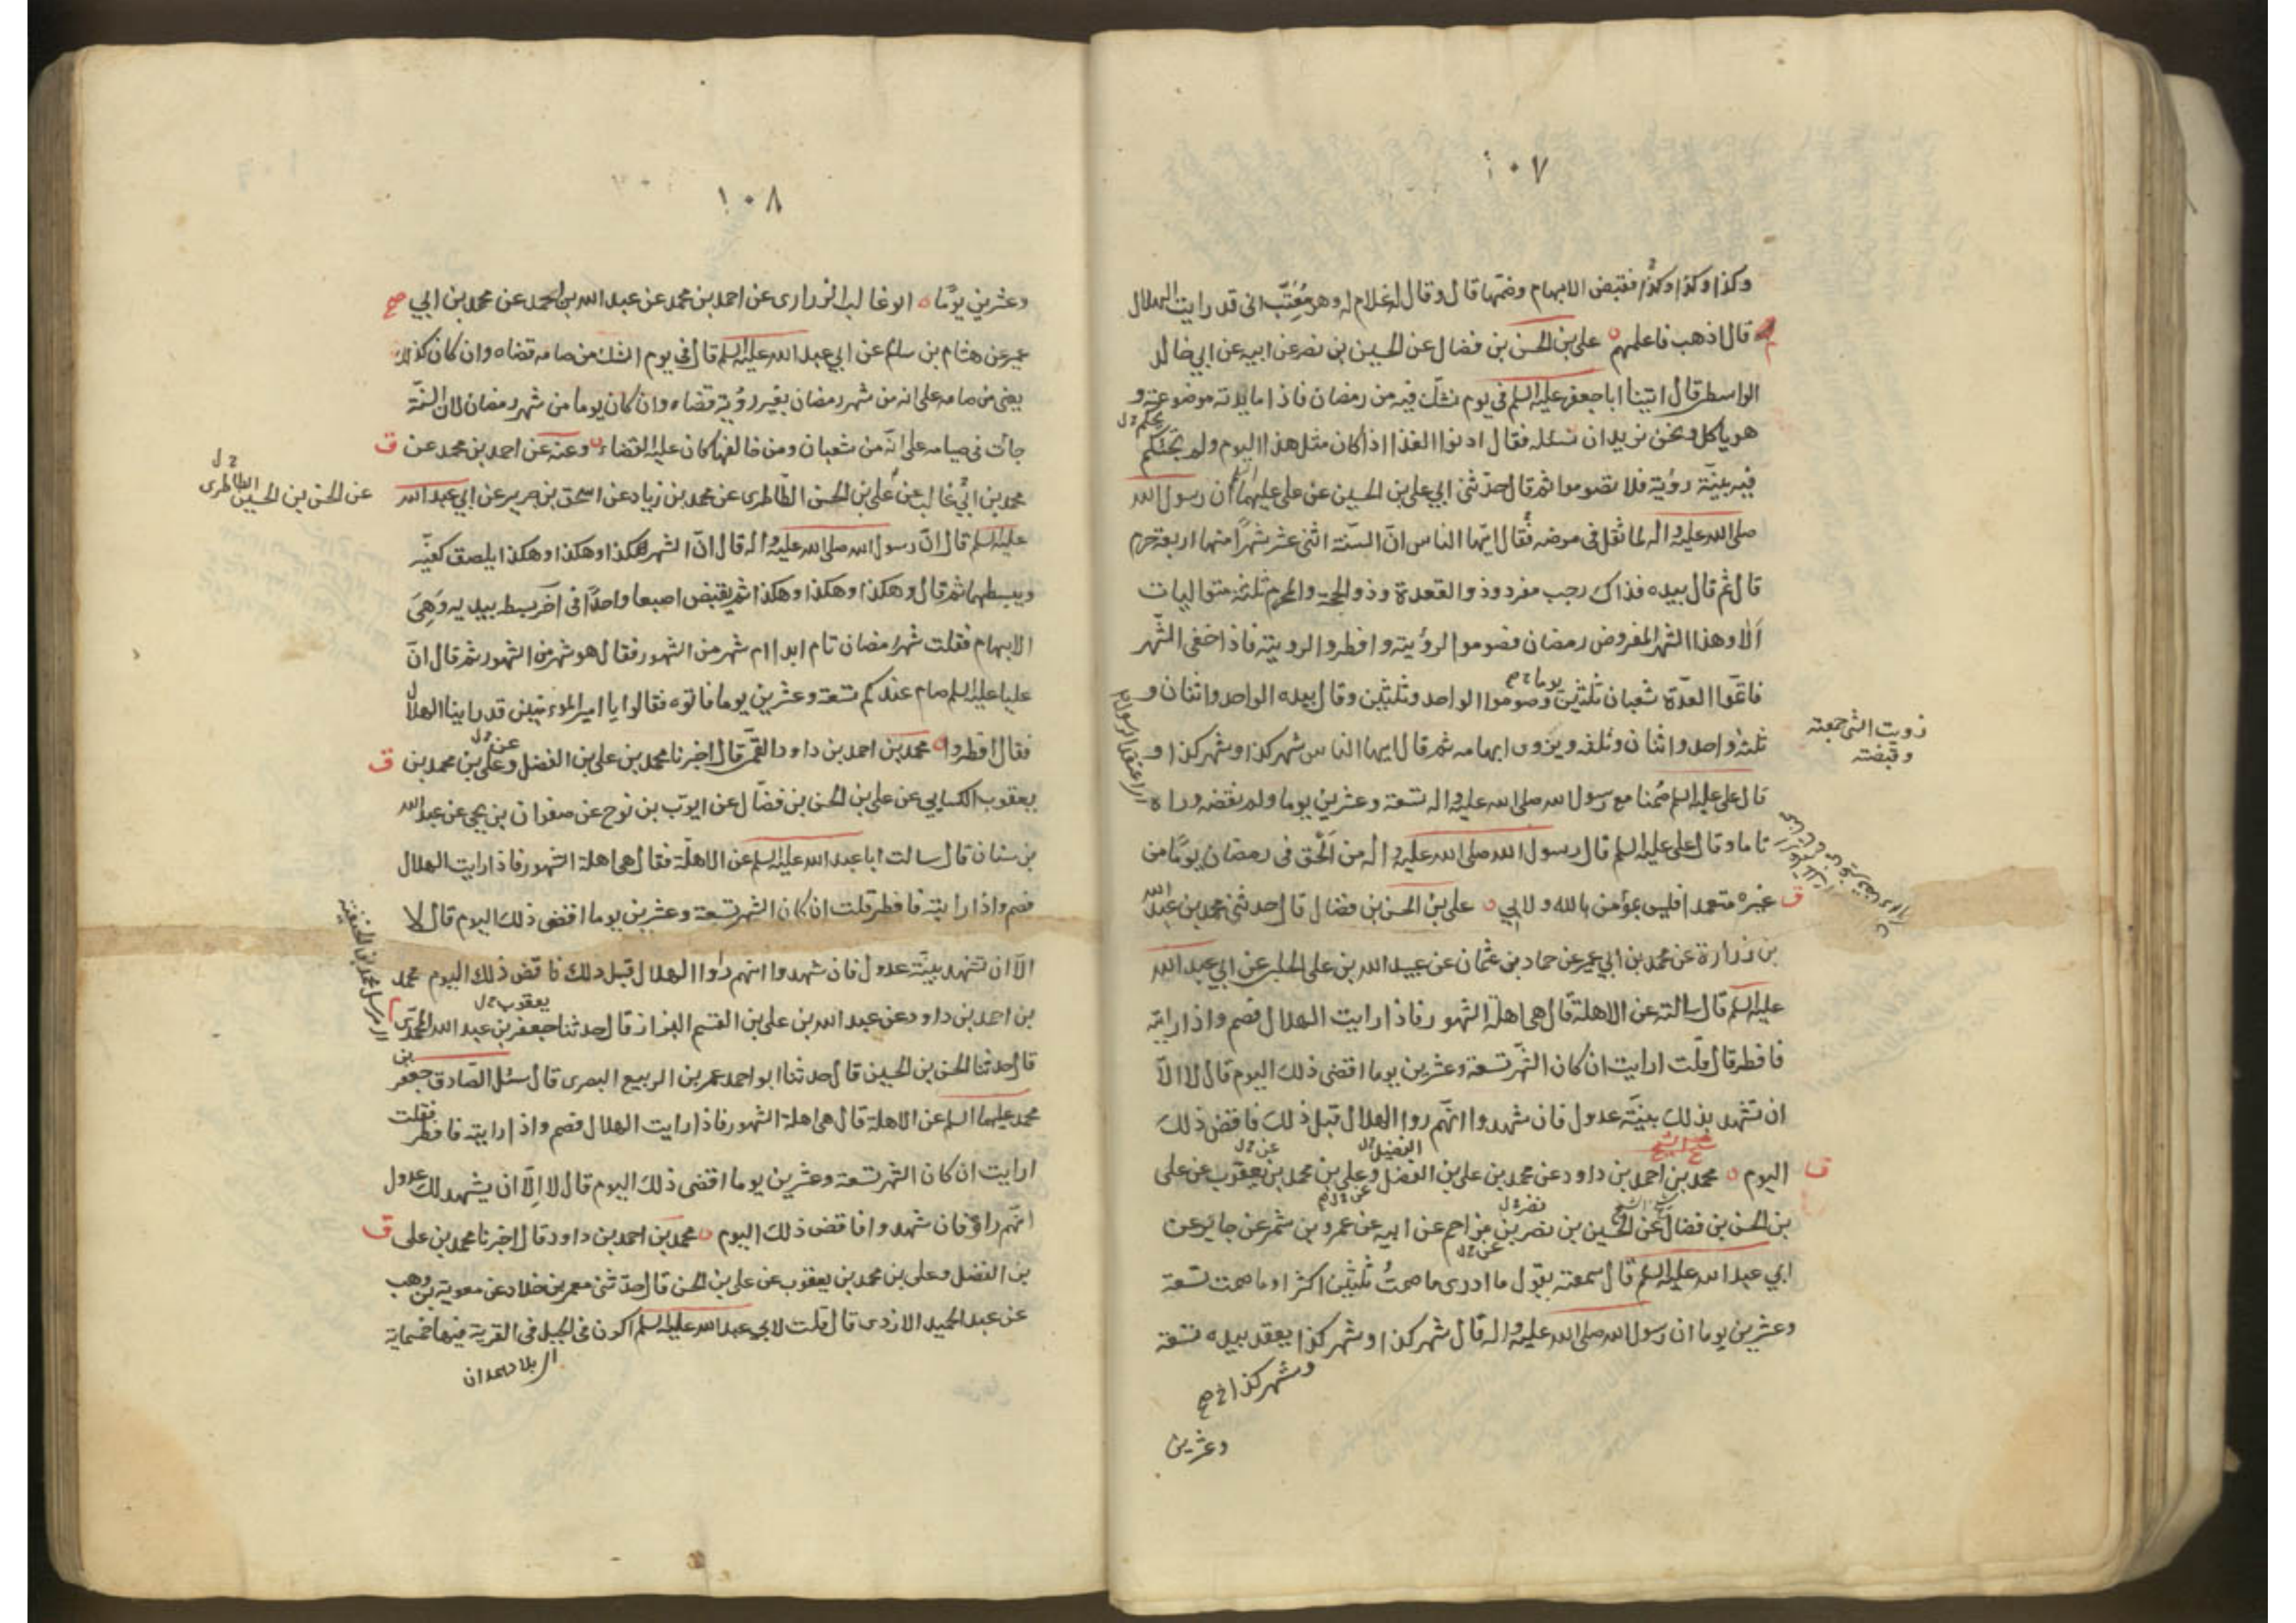 ١٠٧
وكذا وكذا وكذا فقبض الابهام وضمها قال وقال له غلام له وهو مُعَتِّب انى قد رايت الهلال
قال اذهب فاعلمهم علي بن الحسن بن فضال عن الحسين بن نصر عن ابيه عن ابي خالد
الواسطى قال اتينا ابا جعفر عليه السلم فى يوم نشك فيه من رمضان فاذا مايدته موضوعة و
هو ياكل ونحن نريد ان نسئله فقال ادنوا الغذا اذا كان مثل هذا اليوم ولم تجئكم
فيه بيّنة رؤية فلا تصوموا ثم قال حدّثنى ابي علي بن الحسين عن علي عليهما السلم ان رسول الله
صلى الله عليه واله لما ثقل فى مرضه فقال ايّها الناس انّ السّنة اثنى عشر شهرا منها اربعة حرم
قال ثم قال بيده فذاك رجب مفرد وذو القعدة وذو الحجة والمحرم ثلثة متواليات
اَلا وهذا الشهر المفروض رمضان فصوموا لرؤيته وافطروا لرويته فاذا خفى الشّهر
فاتمّوا العدّة شعبان ثلثين وصوموا الواحد وثلثين وقال بيده الواحد واثنان و
يوما خ صح
ثلثة واحد واثنان وثلثه ويزوى ابهامه ثم قال ايها الناس شهر كذا وشهر كذا و
زويت الشى جمعته
وقبضته
قال علي عليه السلم صُمنا مع رسول الله صلى الله عليه واله تسعة وعشرين يوما ولم نقضه وراه
تاما وقال علي عليه السلم قال رسول الله صلى الله عليه واله من الحق فى رمضان يومًا من
غيره متعمدا فليس بمؤمن بالله ولا بي علي بن الحسن بن فضال قال حدثنى محمد بن عبد الله
ق
بن زرارة عن محمد بن ابي عمير عن حماد بن عثمان عن عبيد الله بن علي الحلبى عن ابي عبد الله
عليه السلم قال سالته عن الاهلة قال هى اهلة الشهور فاذا رايت الهلال فصم واذا رايته
فافطر قال قلت ارايت ان كان الشّهر تسعة وعشرين يوما اقضى ذلك اليوم قال لا الاّ
ان تشهد بذلك بيّنة عدول فان شهدوا انّهم روا الهلال قبل ذلك فاقض ذلك
اليوم محمد بن احمد بن داود عن محمد بن علي بن الفضل وعلي بن محمد بن يعقوب عن علي
ق
بن الحسن بن فضال عن الحسين بن نصر بن مزاحم عن ابيه عن عمرو بن شمر عن جابر عن
ابي عبد الله عليه السلم قال سمعته يقول ما ادرى ما صمتُ ثلثين اكثر او ما صمت تسعة
وعشرين يوما ان رسول الله صلى الله عليه واله قال شهر كذا وشهر كذا يعقد بيده تسعة
وشهر كذا خ صح
وعشرين
١٠٨
وعشرين يومًا ابو غالب الزرارى عن احمد بن محمد عن عبد الله بن احمد عن محمد بن ابي
صح
عمير عن هشام بن سالم عن ابي عبد الله عليه السلم قال فى يوم الشك من صامه قضاه وان كان كذلك
يعنى من صامه على انه من شهر رمضان بغير رؤية قضاه وان كان يوما من شهر رمضان لان السّنّة
جائت فى صيامه على انّه من شعبان ومن خالفها كان عليه القضاء وعنه عن احمد بن محمد عن
ق
محمد بن ابي غالب عن علي بن الحسن الطّاطرى عن محمد بن زياد عن اسحق بن جرير عن ابي عبد الله
عن الحسن بن الحسين الطاطرى
عليه السلم قال انّ رسول الله صلى الله عليه واله قال انّ الشهر هكذا وهكذا وهكذا يلصق كفيّه
ويبسطهما ثم قال وهكذا وهكذا وهكذا ثم يقبض اصبعا واحدًا فى اخر بسطه بيديه وَهِىَ
الابهام فقلت شهر رمضان تام ابدا ام شهر من الشهور فقال هو شهر من الشهور ثم قال انّ
عليا عليه السلم صام عندكم تسعة وعشرين يوما فاتوه فقالوا يا امير المؤمنين قد راينا الهلال
فقال افطروا محمد بن احمد بن داود القمّى قال اخبرنا محمد بن علي بن الفضل وعلي بن محمد بن
ق
يعقوب الكسايي عن علي بن الحسن بن فضّال عن ايوّب بن نوح عن صفوان بن يحيى عن عبد الله
بن سنان قال سالت ابا عبد الله عليه السلم عن الاهلّة فقال هى اهلة الشهور فاذا رايت الهلال
فصم واذا رايته فافطر قلت ان كان الشهر تسعة وعشرين يوما اقضى ذلك اليوم قال لا
الاّ ان تشهد بيّنة عدول فان شهدوا انهم راوا الهلال قبل ذلك فاقض ذلك اليوم محمد
بن احمد بن داود عن عبد الله بن علي بن القسم البزاز قال حدثنا جعفر بن عبد الله المحمّدى
قال حدثنا الحسن بن الحسين قال حدثنا ابو احمد عمر بن الربيع البصرى قال سئل الصّادق جعفر بن
محمد عليهما السلم عن الاهلة قال هى اهلة الشهور فاذا رايت الهلال فصم واذا رايته فافطر فقلت
ارايت ان كان الشهر تسعة وعشرين يوما اقضى ذلك اليوم قال لا اِلاّ ان يشهد لك عدول
انّهم راوه فان شهدوا فاقض ذلك اليوم محمد بن احمد بن داود قال اخبرنا محمد بن علي
ق
بن الفضل وعلي بن محمد بن يعقوب عن علي بن الحسن قال حدّثنى معمر بن خلاد عن معوية بن وهب
عن عبد الحميد الازدى قال قلت لابي عبد الله عليه السلم اكون فى الجبل فى القرية فيها خمسماية